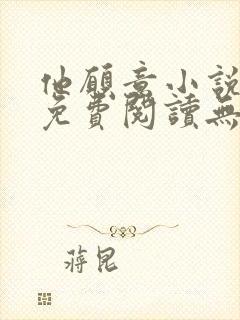 他願意小說
免費閱讀無
蔣昆